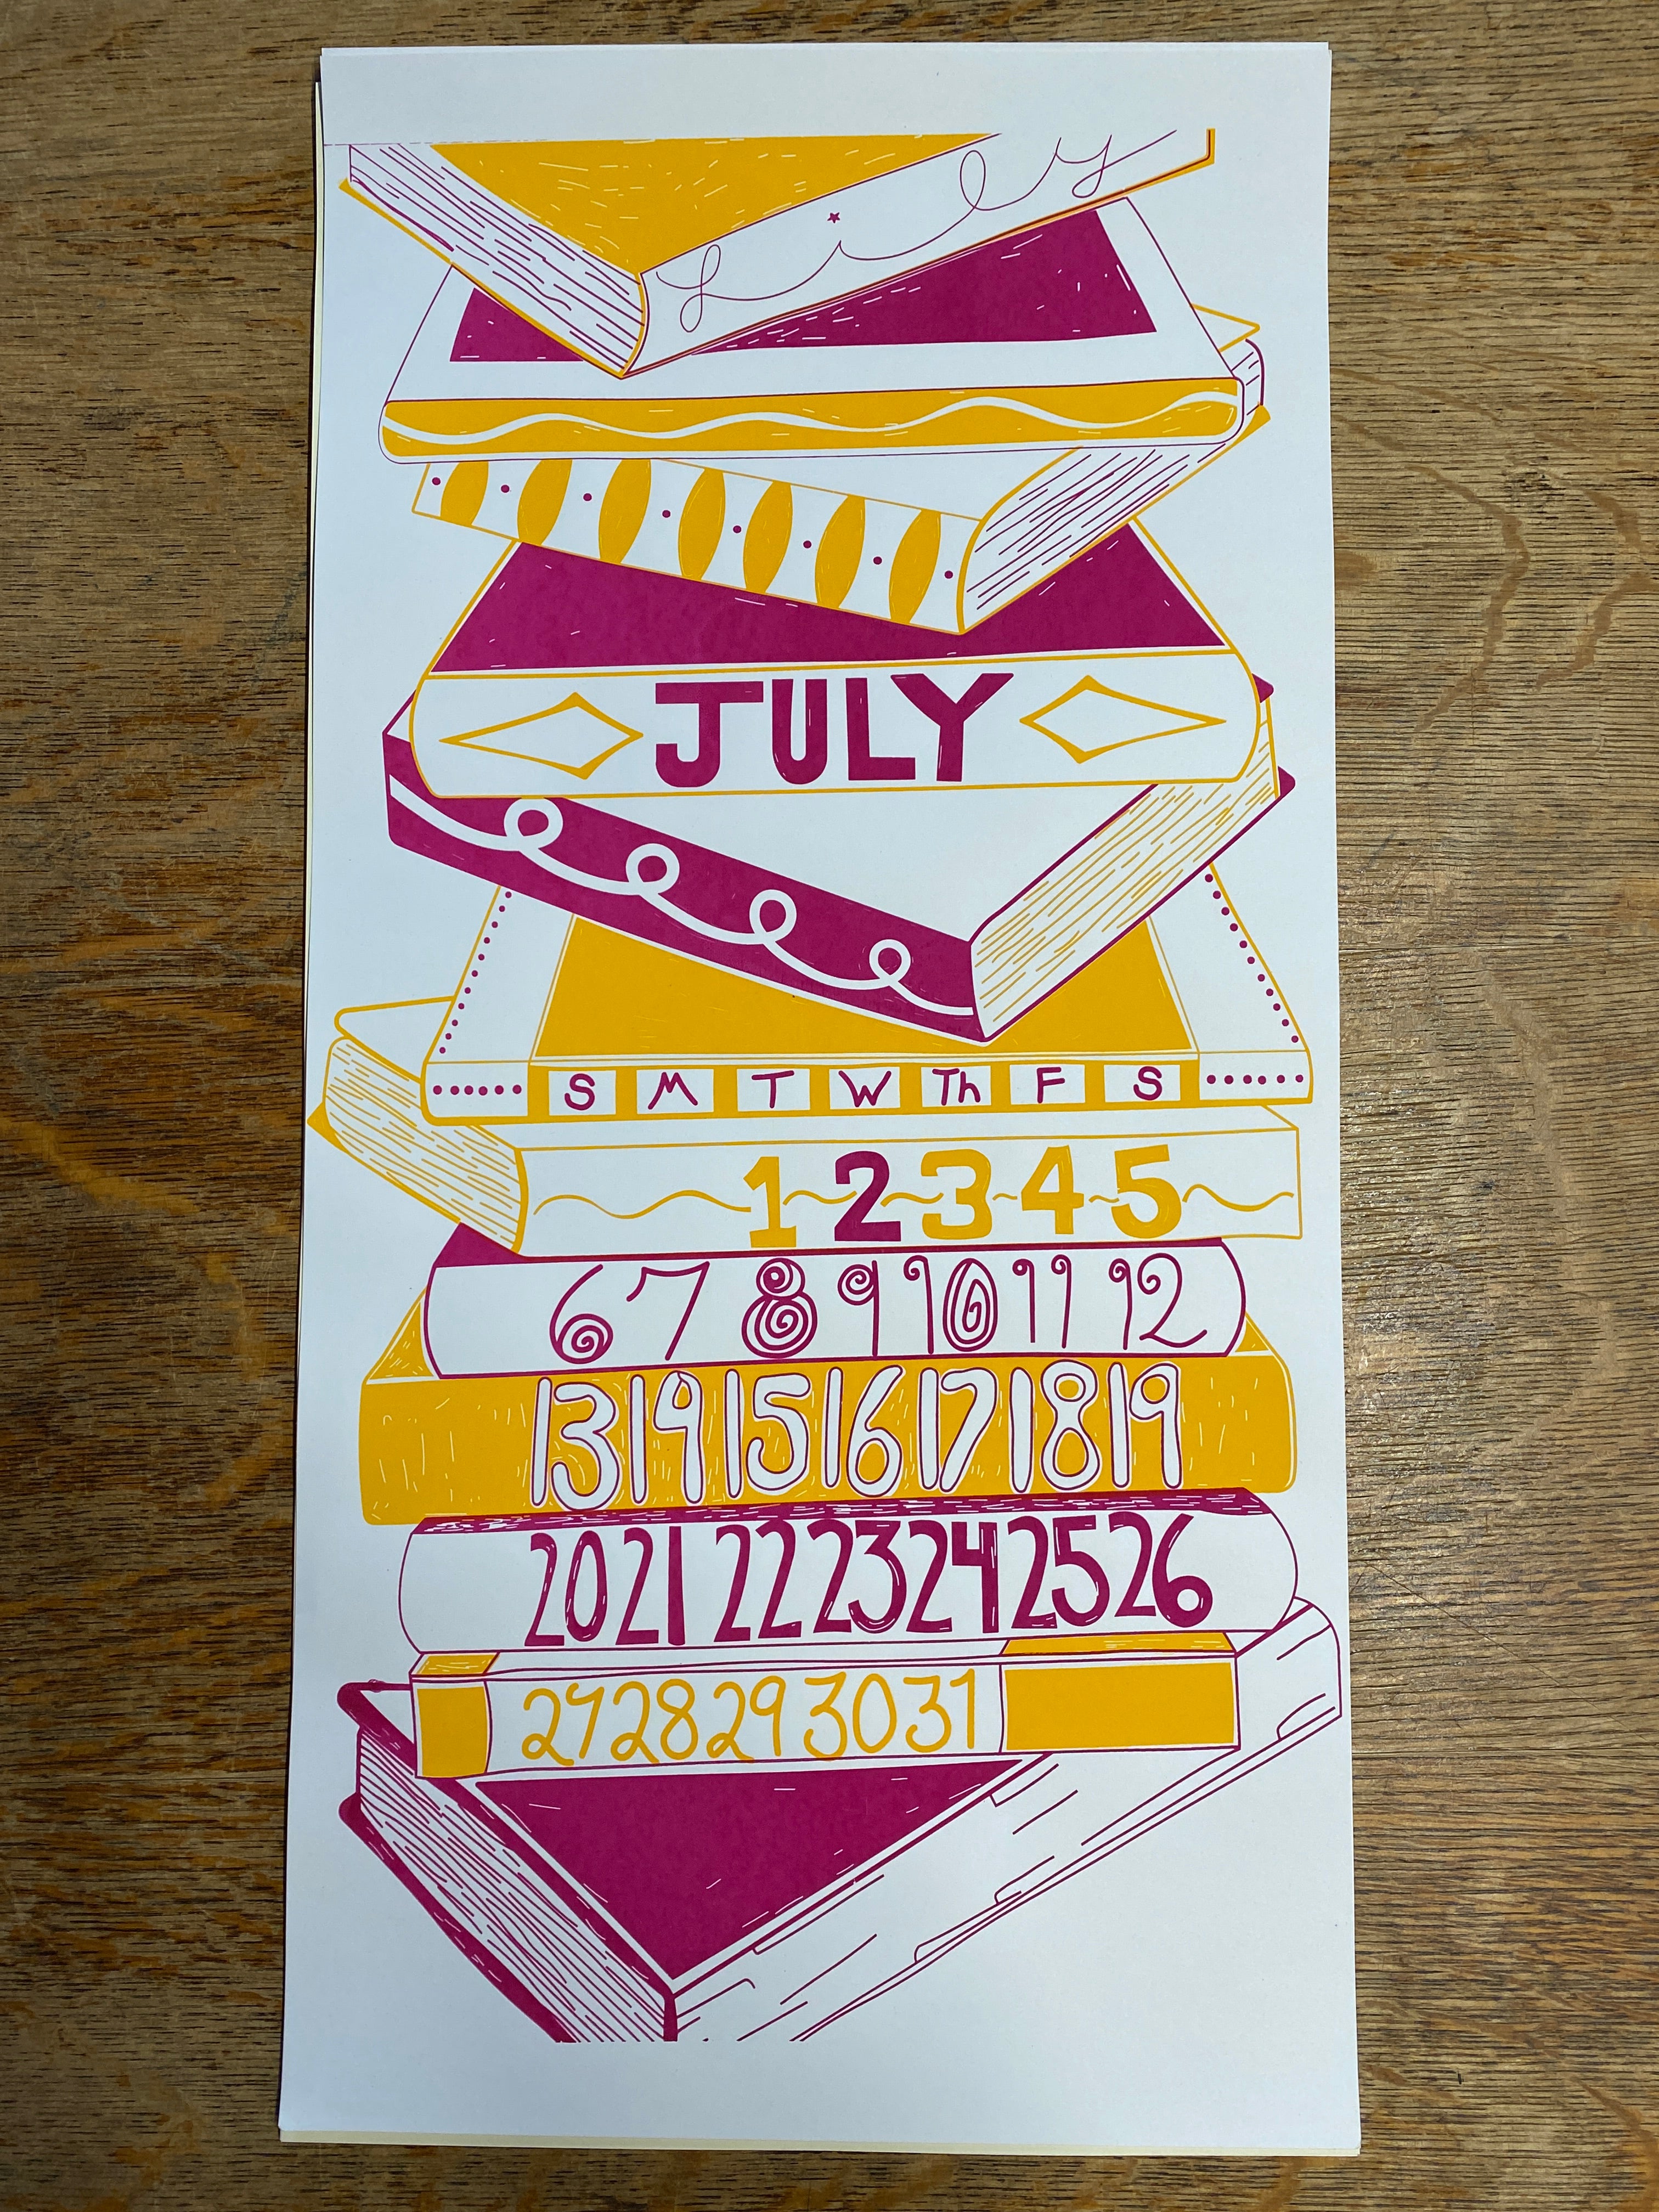 JULY
S M T W Th F S
1 2 3 4 5
6 7 8 9 10 11 12
13 14 15 16 17 18 19
20 21 22 23 24 25 26
27 28 29 30 31